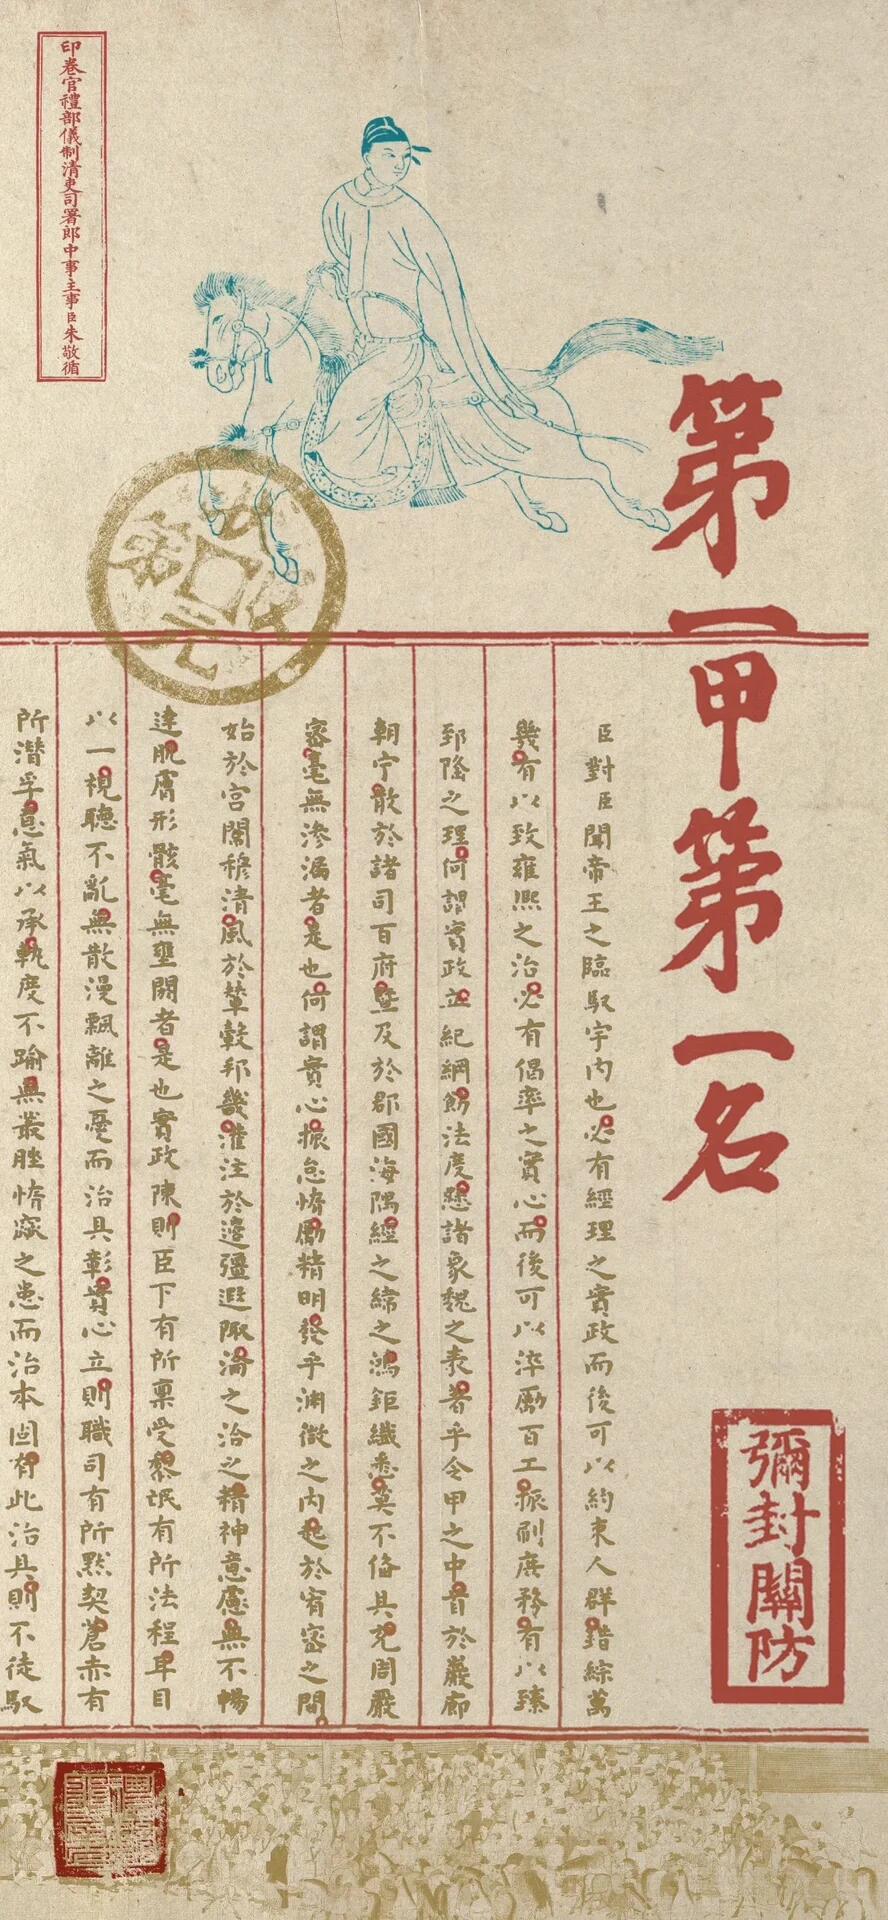 第一甲第一名
彌封關防
臣對臣聞帝王之臨馭宇內也必有經理之實政而後可以約束人群錯綜萬
幾有以致雍熙之治必有倡率之實心而後可以淬勵百工振刷庶務有以臻
郅隆之理何謂實政立紀綱飭法度懸諸象魏之表著乎令甲之中首於巖廊
朝宁散於諸司百府暨及於郡國海隅經之緯之鴻鉅纖悉莫不俻具充周嚴
密毫無滲漏者是也何謂實心振怠惰勵精明發乎淵微之內起於宥密之間
始於宮闈穆清風於輦轂邦畿灌注於邊疆遐陬淪之洽之精神意慮無不暢
達肌膚形骸毫無壅閼者是也實政陳則臣下有所稟受黎氓有所法程耳目
以一視聽不亂無散漫飄離之憂而治具彰實心立則職司有所默契蒼赤有
所潛孚意氣以承軌度不踰無叢脞惰窳之患而治本固有此治具則不徒馭
印卷官禮部儀制清吏司署郎中事主事臣朱敬循